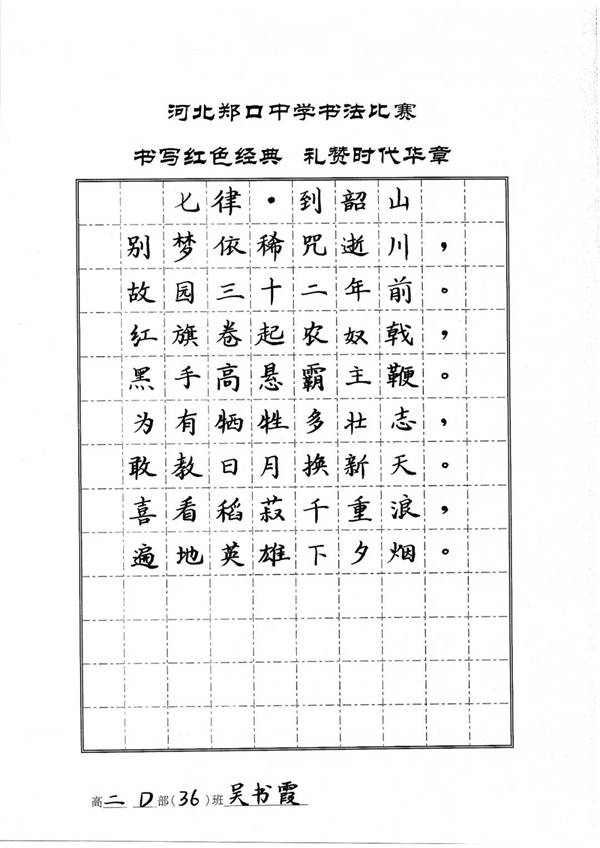 河北郑口中学书法比赛
书写红色经典 礼赞时代华章
七律·到韶山
别梦依稀咒逝川，
故园三十二年前。
红旗卷起农奴戟，
黑手高悬霸主鞭。
为有牺牲多壮志，
敢教日月换新天。
喜看稻菽千重浪，
遍地英雄下夕烟。
高二 D部(36)班吴书霞